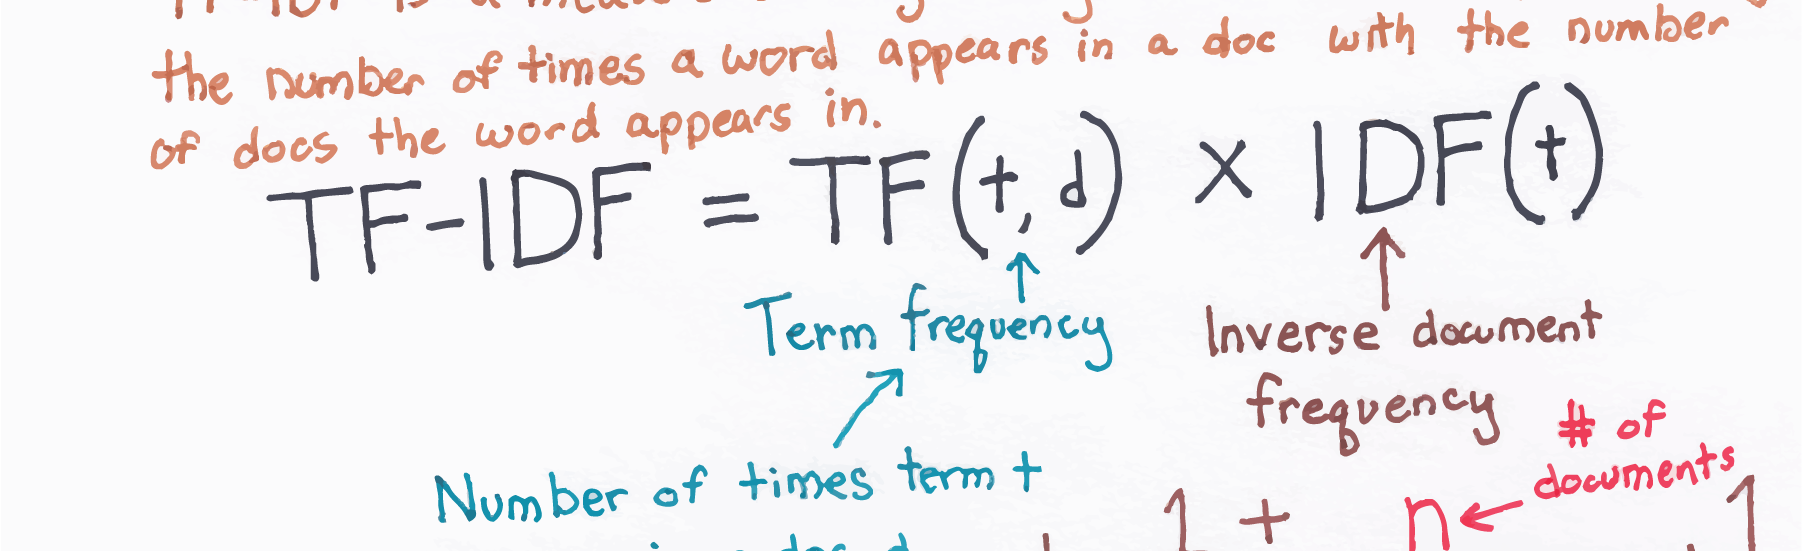 TF-IDF is a
the number of times a word appears in a doc with the number
of docs the word appears in.
TF-IDF = TF(t, d) x IDF(t)
Term frequency
Inverse document
frequency
# of
documents
Number of times term t
1 + n
1